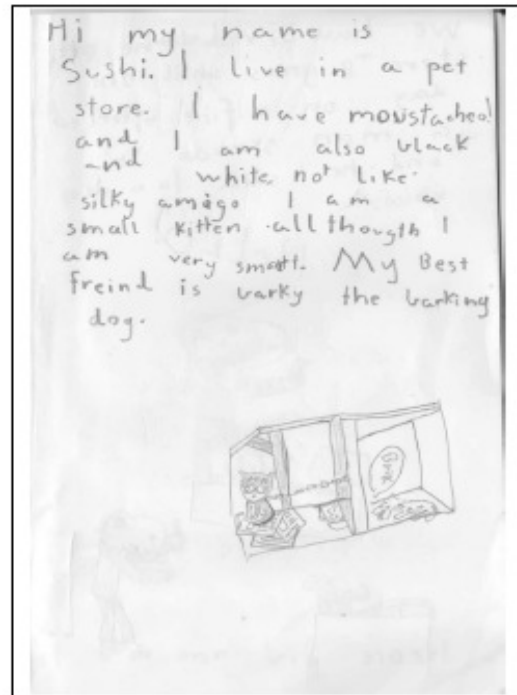 Hi my name is
Sushi. I live in a pet
store. I have moustaches!
and I am also black
and white not like
silky amigo I am a
small kitten allthougth I
am very smatt. My Best
freind is barky the barking
dog.